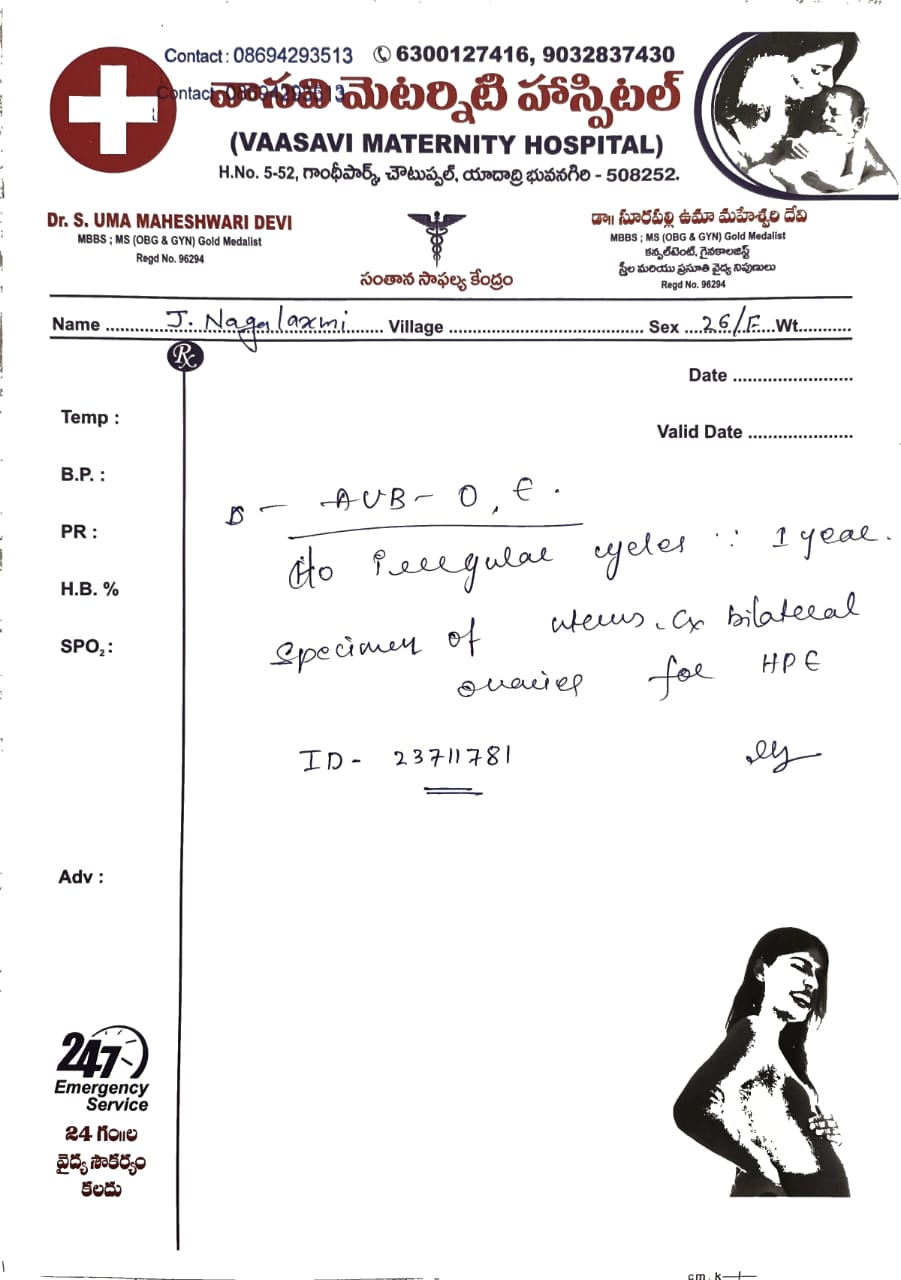 Contact : 08694293513 6300127416, 9032837430
Contact : 08694293513
వాసవి మెటర్నిటి హాస్పిటల్
(VAASAVI MATERNITY HOSPITAL)
H.No. 5-52, గాంధీపార్క్, చౌటుప్పల్, యాదాద్రి భువనగిరి - 508252.
Dr. S. UMA MAHESHWARI DEVI
MBBS ; MS (OBG & GYN) Gold Medalist
Regd No. 96294
సంతాన సాఫల్య కేంద్రం
డా॥ సూరపల్లి ఉమా మహేశ్వరి దేవి
MBBS ; MS (OBG & GYN) Gold Medalist
కన్సల్టెంట్, గైనకాలజిస్ట్
స్త్రీల మరియు ప్రసూతి వైద్య నిపుణులు
Regd No. 96294
Name J. Nagalaxmi Village Sex 26/F Wt.
Rx
Date
Valid Date
Temp :
B.P. :
PR :
H.B. %
SPO2 :
D - AUB - O, E.
H/o irregular cycles ∵ 1 year.
Specimen of uterus, Cx bilateral
ovaries for HPE
ID - 23711781
Adv :
247
Emergency
Service
24 గం॥ల
వైద్య సౌకర్యం
కలదు
cm. k